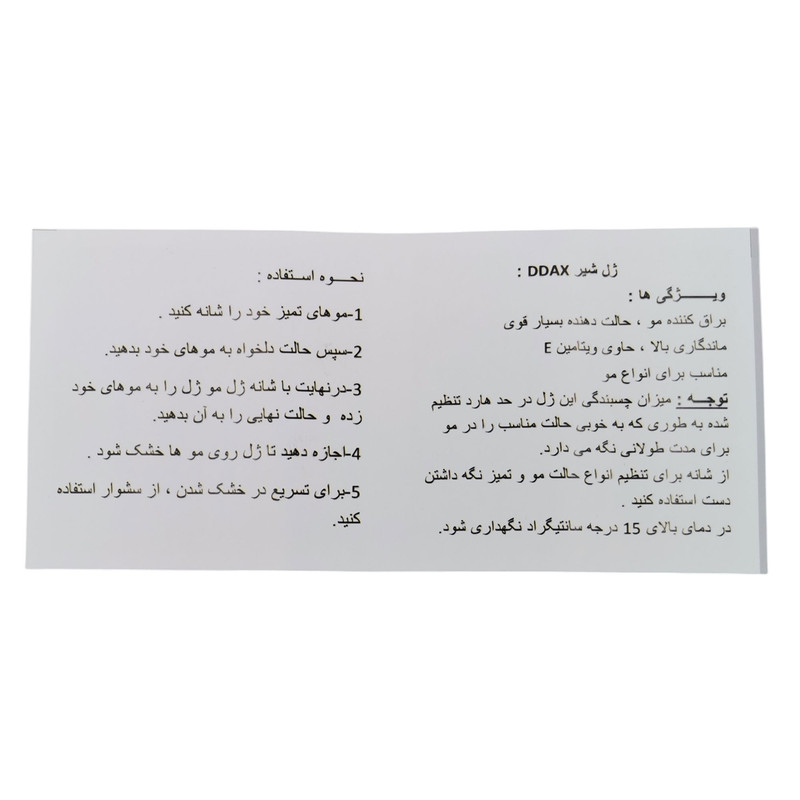 ژل شیر DDAX :
ویـــــــژگی ها :
براق کننده مو ، حالت دهنده بسیار قوی
ماندگاری بالا ، حاوی ویتامین E
مناسب برای انواع مو
توجـــه : میزان چسبندگی این ژل در حد هارد تنظیم
شده به طوری که به خوبی حالت مناسب را در مو
برای مدت طولانی نگه می دارد.
از شانه برای تنظیم انواع حالت مو و تمیز نگه داشتن
دست استفاده کنید .
در دمای بالای 15 درجه سانتیگراد نگهداری شود.
نحـــوه اســتفاده :
1-موهای تمیز خود را شانه کنید .
2-سپس حالت دلخواه به موهای خود بدهید.
3-درنهایت با شانه ژل مو ژل را به موهای خود
زده و حالت نهایی را به آن بدهید.
4-اجازه دهید تا ژل روی مو ها خشک شود .
5-برای تسریع در خشک شدن ، از سشوار استفاده
کنید.